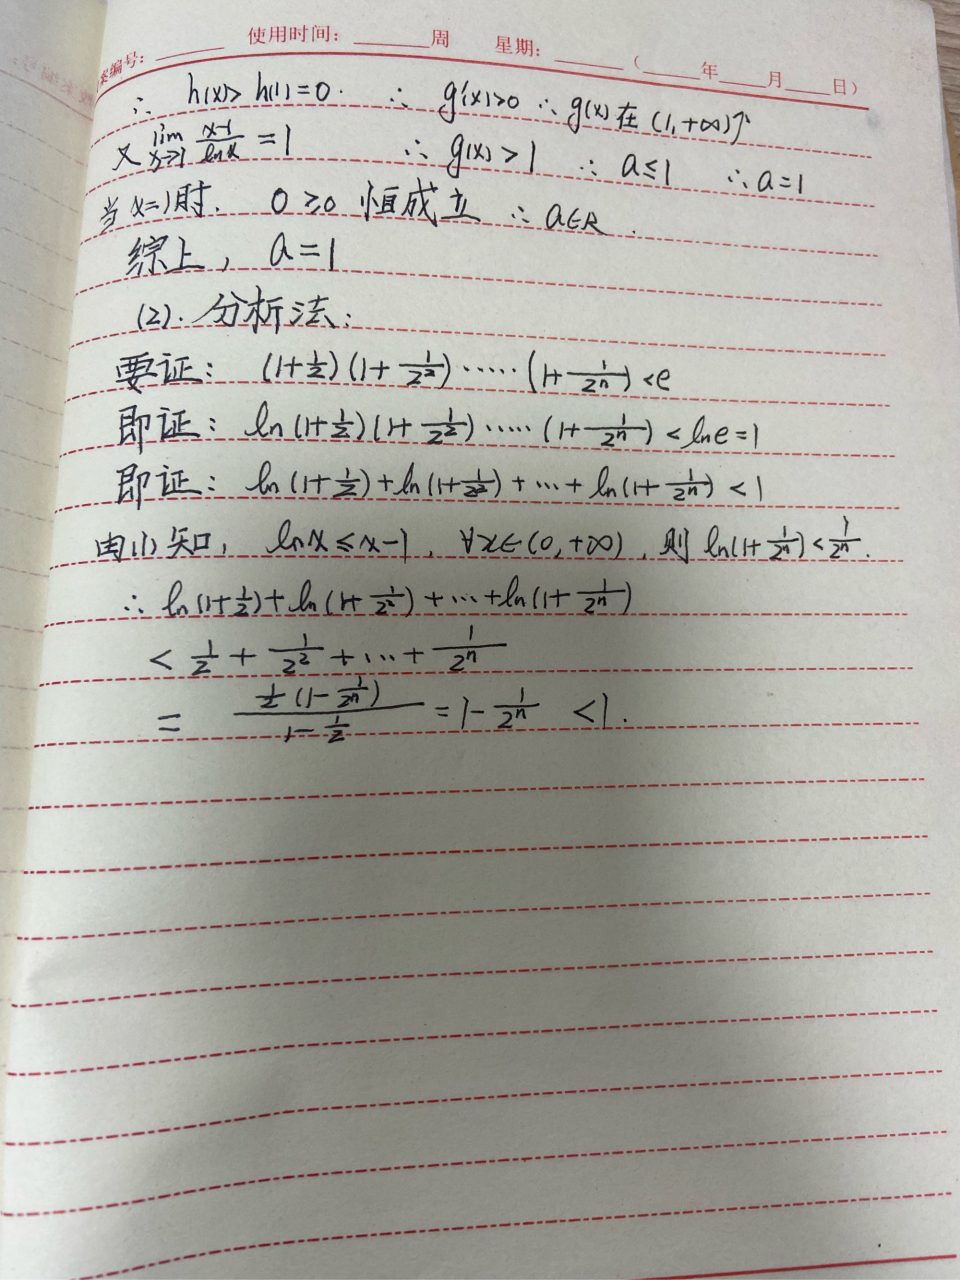 案编号：______ 使用时间：______周 星期：______（____年____月____日）
∴ h(x)>h(1)=0. ∴ g'(x)>0 ∴ g(x)在(1,+∞)↑
又 lim x→1 (x-1)/(lnx) = 1 ∴ g(x)>1 ∴ a≤1 ∴ a=1
当x=1时. 0≥0 恒成立 ∴ a∈R.
综上, a=1
(2). 分析法:
要证: (1+1/2)(1+1/2²)……(1+1/2ⁿ)<e
即证: ln(1+1/2)(1+1/2²)……(1+1/2ⁿ)<lne=1
即证: ln(1+1/2)+ln(1+1/2²)+…+ln(1+1/2ⁿ)<1
由(1)知, lnx≤x-1, ∀x∈(0,+∞), 则 ln(1+1/2ⁿ)<1/2ⁿ.
∴ ln(1+1/2)+ln(1+1/2²)+…+ln(1+1/2ⁿ)
< 1/2 + 1/2² +…+ 1/2ⁿ
= (1/2(1-1/2ⁿ))/(1-1/2) = 1-1/2ⁿ <1.